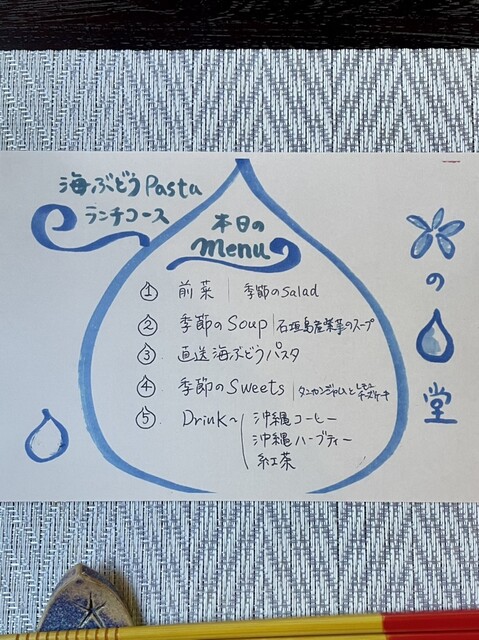 海ぶどうPasta
ランチコース
本日の
Menu
① 前菜 | 季節のSalad
② 季節のSoup | 石垣島産業夢のスープ
③ 直送海ぶどうパスタ
④ 季節のSweets | タンカンジャムとレモンチーズケーキ
⑤ Drink~ 沖縄コーヒー
沖縄ハーブティー
紅茶
の
堂